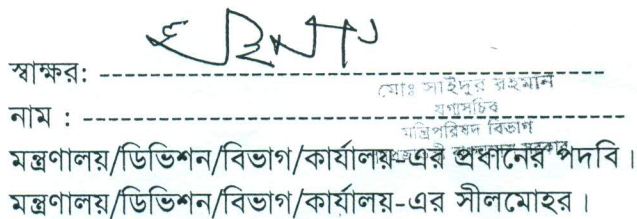 স্বাক্ষর: ------------------------------------------------
মোঃ সাইদুর রহমান
নাম : ------------------------------------------------
যুগ্মসচিব
মন্ত্রিপরিষদ বিভাগ
মন্ত্রণালয়/ডিভিশন/বিভাগ/কার্যালয়-এর প্রধানের পদবি।
মন্ত্রণালয়/ডিভিশন/বিভাগ/কার্যালয়-এর সীলমোহর।